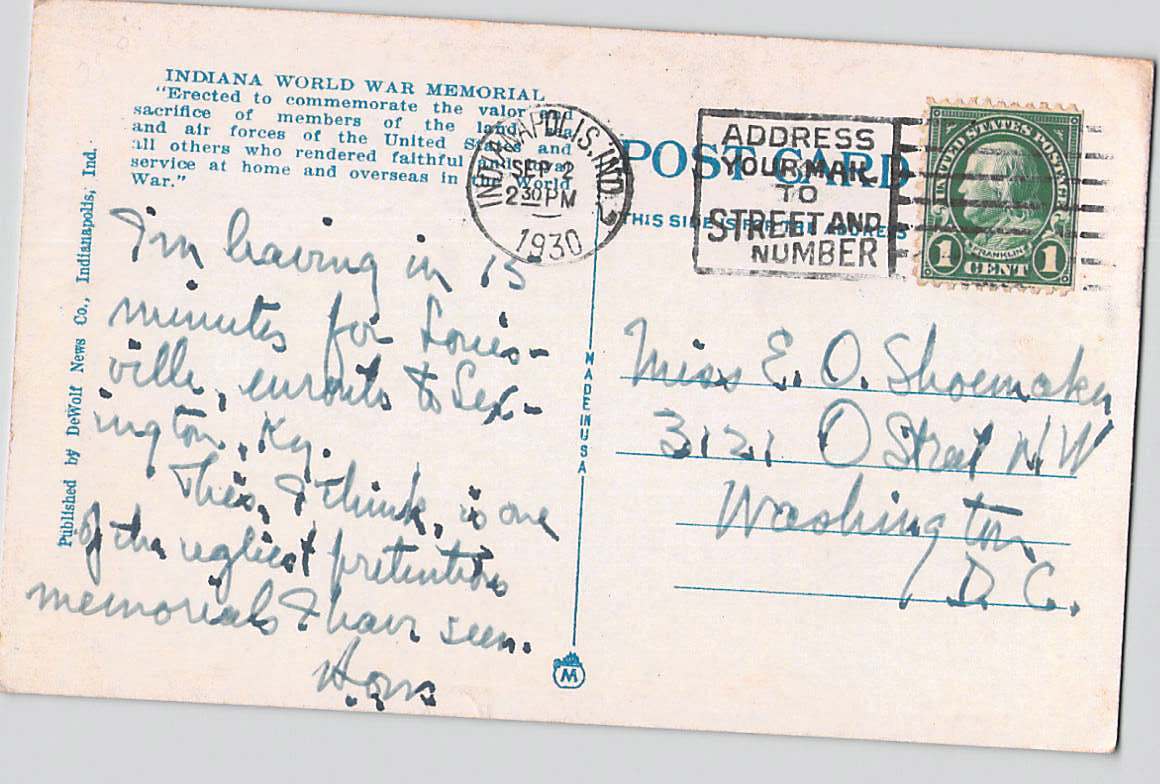 INDIANA WORLD WAR MEMORIAL
"Erected to commemorate the valor and
sacrifice of members of the land, sea
and air forces of the United States and
all others who rendered faithful and
service at home and overseas in the World
War."
INDIANAPOLIS, IND.
SEP 2
2 30 PM
1930
POST CARD
THIS SIDE IS FOR THE ADDRESS
ADDRESS
YOUR MAIL
TO
STREET AND
NUMBER
UNITED STATES POSTAGE
FRANKLIN
1 CENT 1
Published by DeWolf News Co., Indianapolis, Ind.
I'm leaving in 15
minutes for Louis-
ville, enroute to Lex-
ington, Ky.
This, I think, is one
of the ugliest pretentious
memorials I have seen.
MADE IN USA
M
Miss E. O. Shoemaker
3121 O Street NW
Washington
D. C.